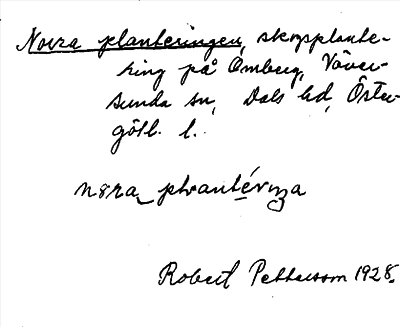 Norra planteringen, skogsplante-
ring på Omberg, Väver-
sunda sn, Dals hd, Öster-
götl. l.
nɷra plɑantéri̲ŋa
Robert Pettersson 1928.